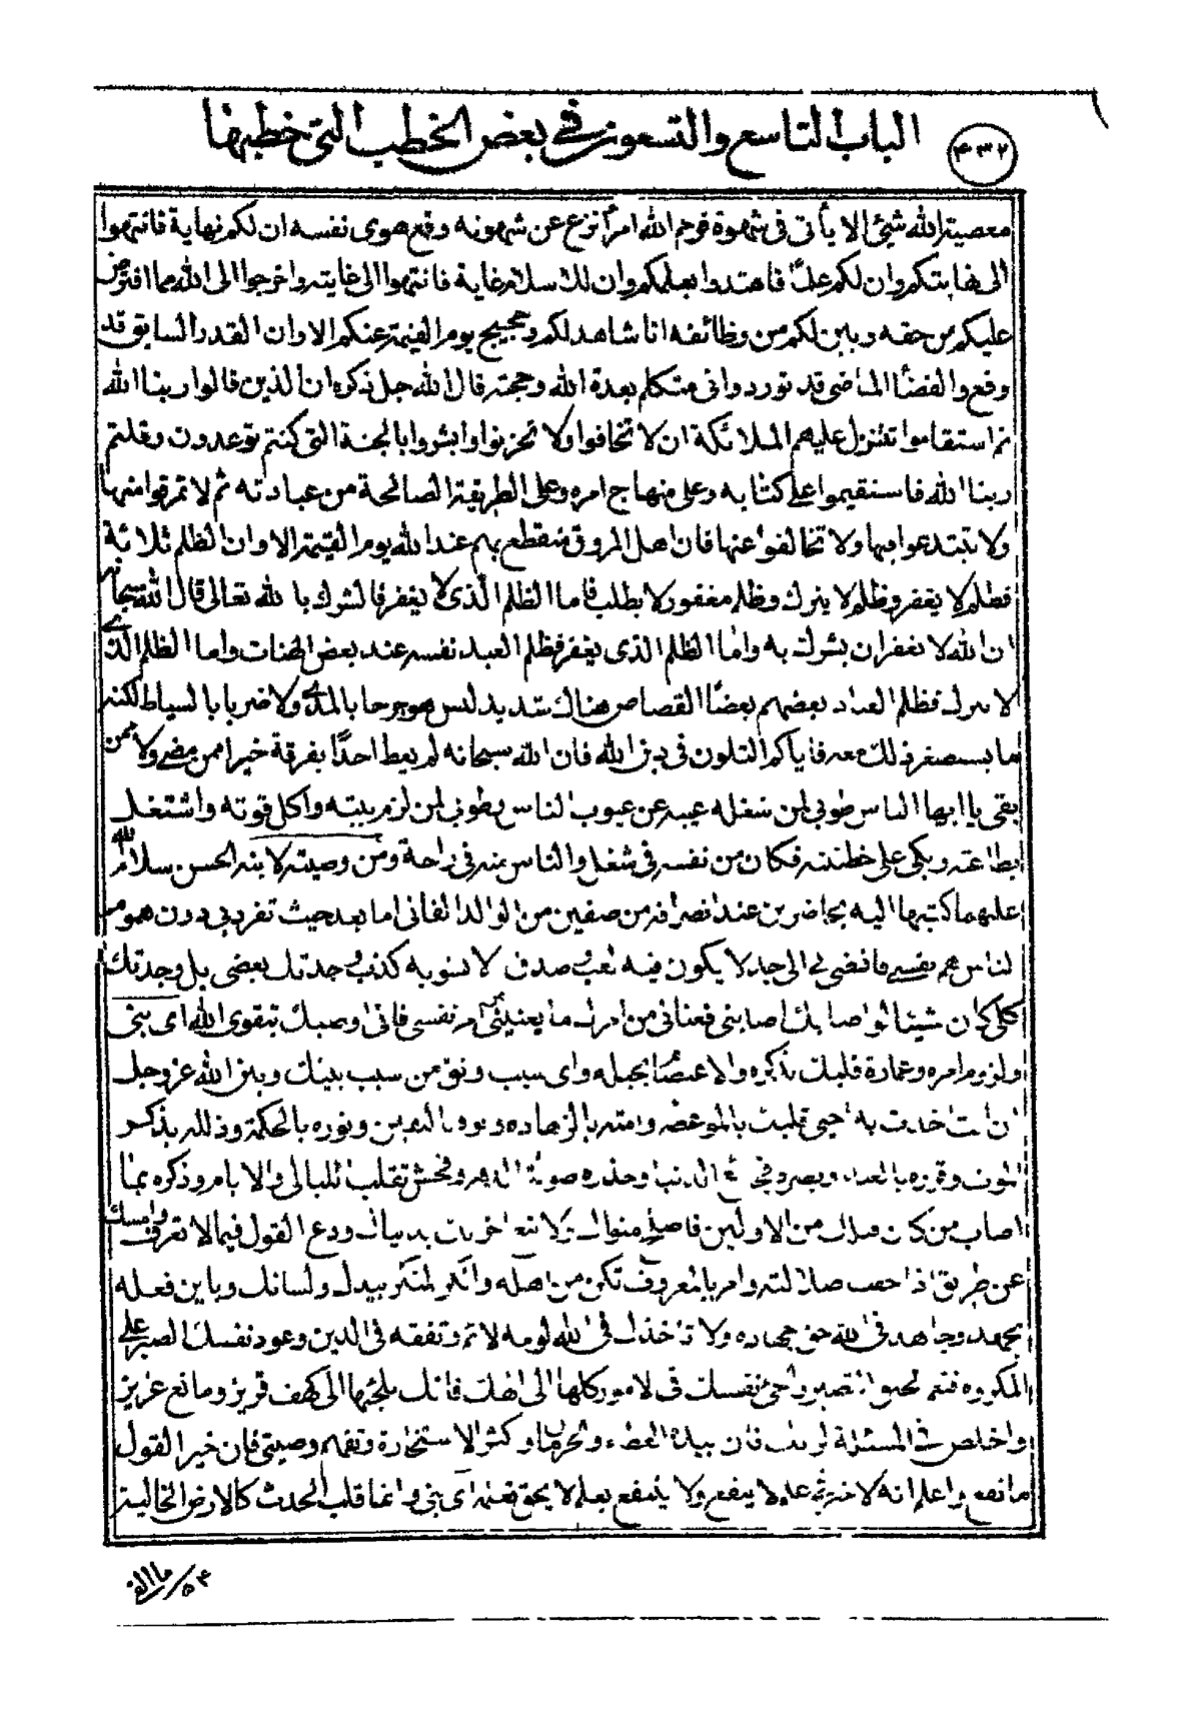 الباب التاسع والتسعون في بعض الخطب التي خطبها
۴۳۲
معصية الله شيئ الا يأتى فى شهوة فرحم الله امرأ نزع عن شهوته وقمع هوى نفسه ان لكم نهاية فانتهوا
الى نهايتكم وان لكم علمًا فاهتدوا بعلمكم وان للاسلام غاية فانتهوا الى غايته واخرجوا الى الله مما افترض
عليكم من حقه وبين لكم من وظائفه انا شاهد لكم وحجيج يوم القيمة عنكم الا وان القدر السابق قد
وقع والقضاء الماضى قد تورد وانى متكلم بعدة الله وحجته قال الله جل ذكره ان الذين قالوا ربنا الله
ثم استقاموا تتنزل عليهم الملائكة ان لا تخافوا ولا تحزنوا وابشروا بالجنة التى كنتم توعدون وقلتم
ربنا الله فاستقيموا على كتابه وعلى منهاج امره وعلى الطريقة الصالحة من عبادته ثم لا تمرقوا منها
ولا تبتدعوا فيها ولا تخالفوا عنها فان اهل المروق منقطع بهم عند الله يوم القيمة الا وان الظلم ثلاثة
فظلم لا يغفر وظلم لا يترك وظلم مغفور لا يطلب فاما الظلم الذى لا يغفر فالشرك بالله تعالى قال الله سبحانه
ان الله لا يغفر ان يشرك به واما الظلم الذى يغفر فظلم العبد نفسه عند بعض الهنات واما الظلم الذى
لا يترك فظلم العباد بعضهم بعضًا القصاص هناك شديد ليس هو جرحا بالمدى ولا ضربا بالسياط لكنه
ما يستصغر ذلك معه فاياكم التلون فى دين الله فان الله سبحانه لم يعط احدًا بفرقة خيرا ممن مضى ولا ممن
بقى يا ايها الناس طوبى لمن شغله عيبه عن عيوب الناس وطوبى لمن لزم بيته واكل قوته واشتغل
بطاعته وبكى على خطيئته فكان من نفسه فى شغل والناس منه فى راحة ومن وصيته لابنه الحسن سلام الله
عليهما كتبها اليه بحاضرين عند انصرافه من صفين من الوالد الفانى اما بعد حيث تفرد بى دون هموم
الناس هم نفسى فافضى بى الى جد لا يكون فيه لعب وصدق لا يشوبه كذب وجدتك بعضى بل وجدتك
كلى كان شيئا لو اصابك اصابنى فعنانى من امرك ما يعنينى من امر نفسى فانى اوصيك بتقوى الله اى بنى
ولزوم امره وعمارة قلبك بذكره والاعتصام بحبله واى سبب وثق من سبب بينك وبين الله عز وجل
ان انت اخذت به احيى قلبك بالموعظة وامته بالزهادة وقوه باليقين ونوره بالحكمة وذلله بذكر
الموت وقرره بالفناء وبصره فجائع الدنيا وحذره صولة الدهر وفحش تقلب الليالى والايام وذكره بما
اصاب من كان قبلك من الاولين فاصلح مثواك ولا تبع اخرتك بدنياك ودع القول فيما لا تعرف وامسك
عن طريق اذا خفت ضلالته وامر بالمعروف تكن من اهله وانكر المنكر بيدك ولسانك وباين فعله
بجهدك وجاهد فى الله حق جهاده ولا تاخذك فى الله لومة لائم وتفقه فى الدين وعود نفسك الصبر على
المكروه فنعم الخلق التصبر والجئ نفسك فى الامور كلها الى الهك فانك تلجئها الى كهف حريز ومانع عزيز
واخلص فى المسئلة لربك فان بيده العطاء والحرمان واكثر الاستخارة وتفهم وصيتى فان خير القول
ما نفع واعلم انه لا خير فى علم لا ينفع ولا ينتفع بعلم لا يحق تعلمه اى بنى وانما قلب الحدث كالارض الخالية